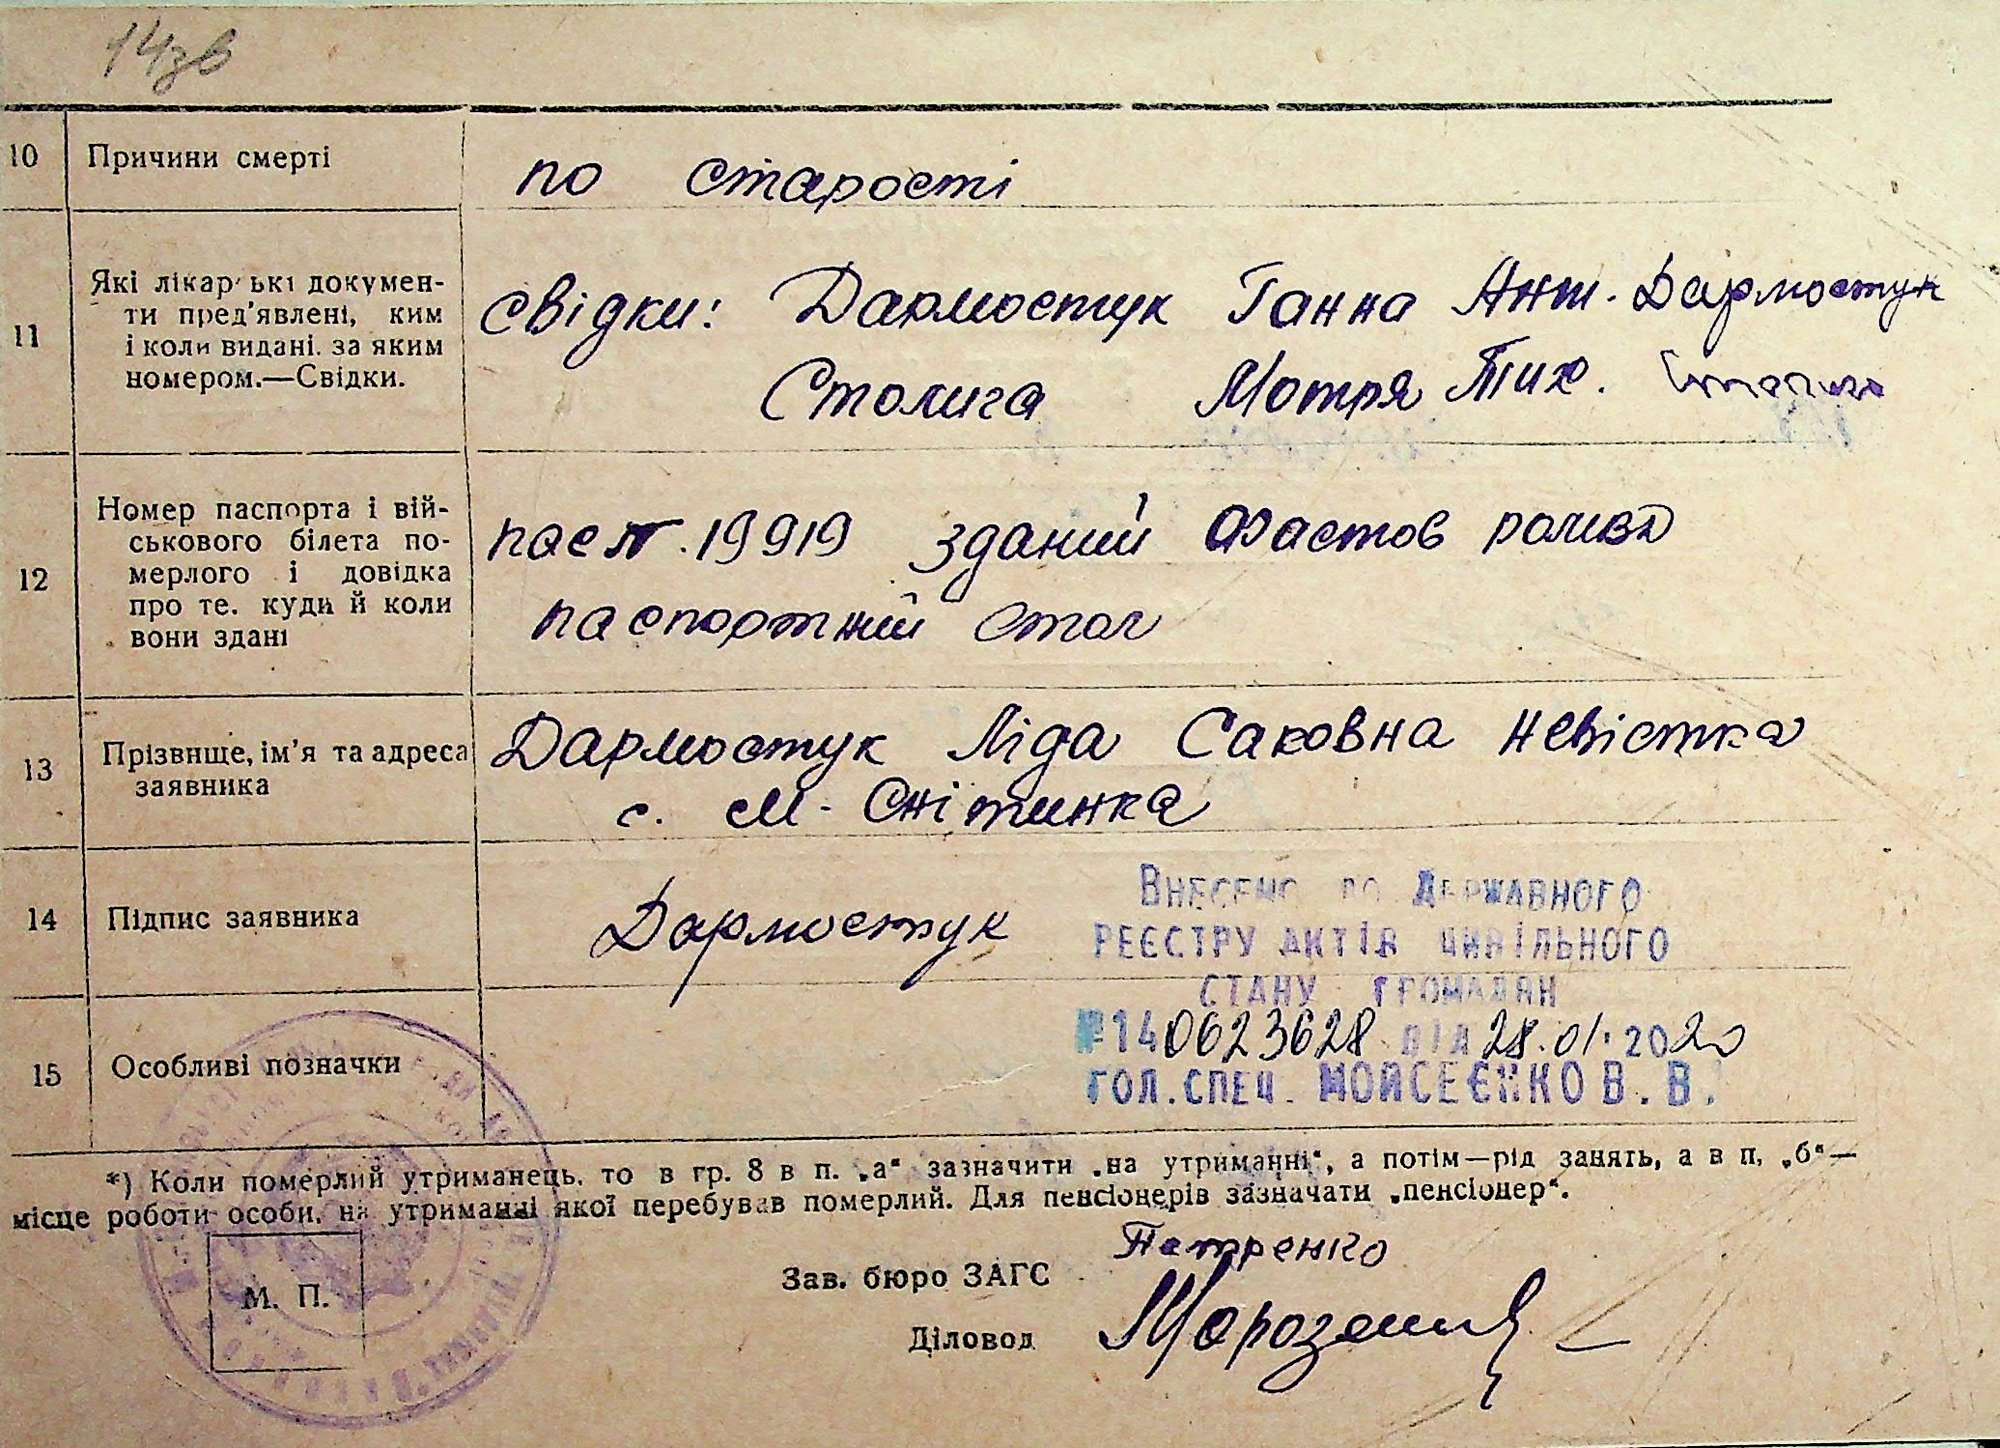 14зв
10 Причини смерті по старості
11 Які лікарські докумен-
ти пред'явлені, ким
і коли видані. за яким
номером.—Свідки.
свідки: Дармостук Ганна Ант. Дармостук
Столига Мотря Тих.
12 Номер паспорта і вій-
ськового білета по-
мерлого і довідка
про те. куди й коли
вони здані
пасп. 19919 зданий Фастов
паспортний стол
13 Прізвище, ім'я та адреса
заявника
Дармостук Ліда Саковна невістка
с. М-Снітинка
14 Підпис заявника Дармостук
Внесено до Державного
реєстру актів цивільного
стану громадян
№140623628 від 28.01.2020
гол.спец. Мойсеєнко В.В.
15 Особливі позначки
*) Коли померлий утриманець. то в гр. 8 в п. „а“ зазначити „на утриманні“, а потім—рід занять, а в п, „б“—
місце роботи особи, на утриманні якої перебував померлий. Для пенсіонерів зазначати „пенсіонер“.
М. П.
Зав. бюро ЗАГС Петренко
Діловод